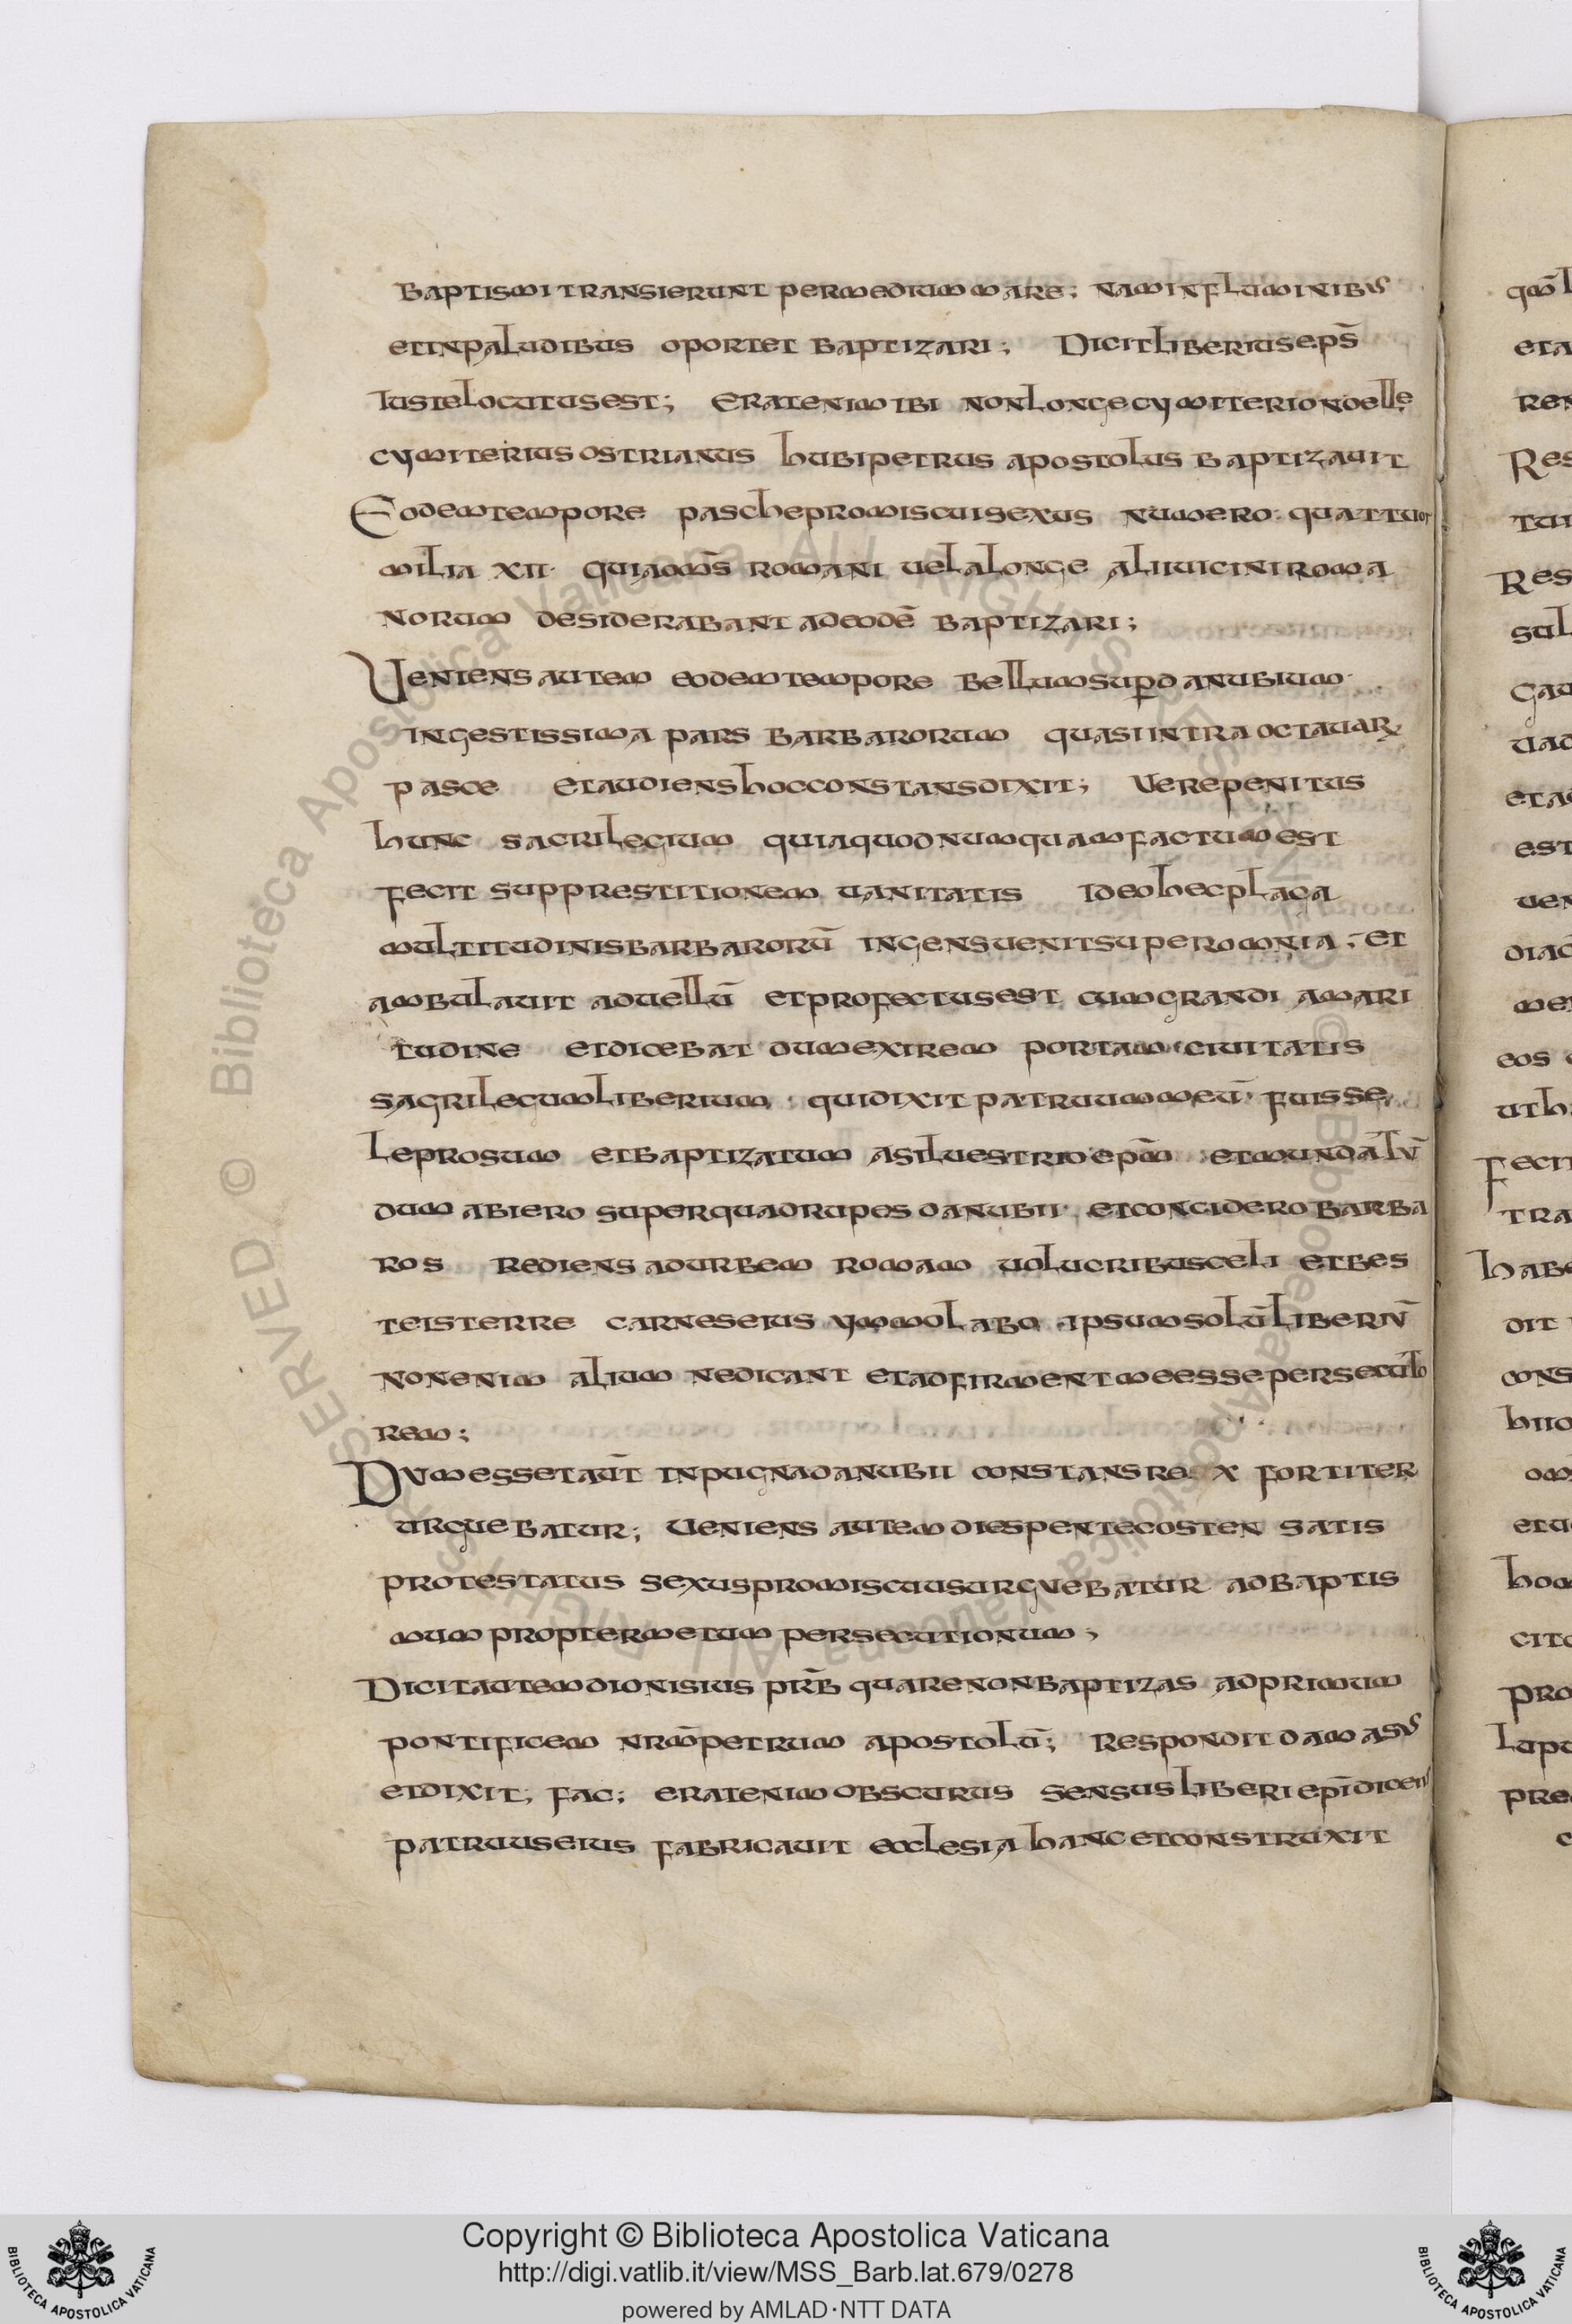 baptismi transierunt per medium mare; nam in fluminibus
et in paludibus oportet baptizari; Dicit liberius ep̄s
iuste locutus est; Erat enim ibi non longe cymiterio nouelle
cymiterius ostrianus hubi petrus apostolus baptizauit
Eodem tempore pasche promiscui sexus numero quattuor
milia xii· quia om̄s romani uel a longe alii uicini roma
norum desiderabant ad eodē baptizari;
Ueniens autem eodem tempore bellum sup̲ danubium·
ingestissima pars barbarorum quasi intra octauar̲
pasce et audiens hoc constans dixit; Vere penitus
hunc sacrilegium quia quod numquam factum est
fecit supprestitionem uanitatis Ideo hec plaga
multitudinis barbarorū ingens uenit super omnia; et
ambulauit ad uellū et profectus est cum grandi amari
tudine et dicebat dum exirem portam ciuitatis
sacrilegum liberium· qui dixit patruum meū· fuisse
leprosum et baptizatum a siluestrio ep̄m et mundatū
dum abiero super quadrupes danubii· et concidero barba
ros rediens ad urbem romam uolucribus celi et bes
teis terre carnes eius ymmolabo ipsum solū liberiū
non enim alium ne dicant et adfirment me esse persecuto
rem;
Dum esset aūt in pugna danubii constans rex fortiter
urguebatur; Ueniens autem dies pentecosten satis
protestatus sexus promiscuus urguebatur ad baptis
mum propter metum persecutionum;
Dicit autem dionisius pr̄b quare non baptizas ad primum
pontificem nr̄m petrum apostolū; Respondit damasus
et dixit; fac; erat enim obscurus sensus liberi ep̄i dicens
patruus eius fabricauit ecclesia hanc et construxit
Copyright © Biblioteca Apostolica Vaticana
http://digi.vatlib.it/view/MSS_Barb.lat.679/0278
powered by AMLAD·NTT DATA